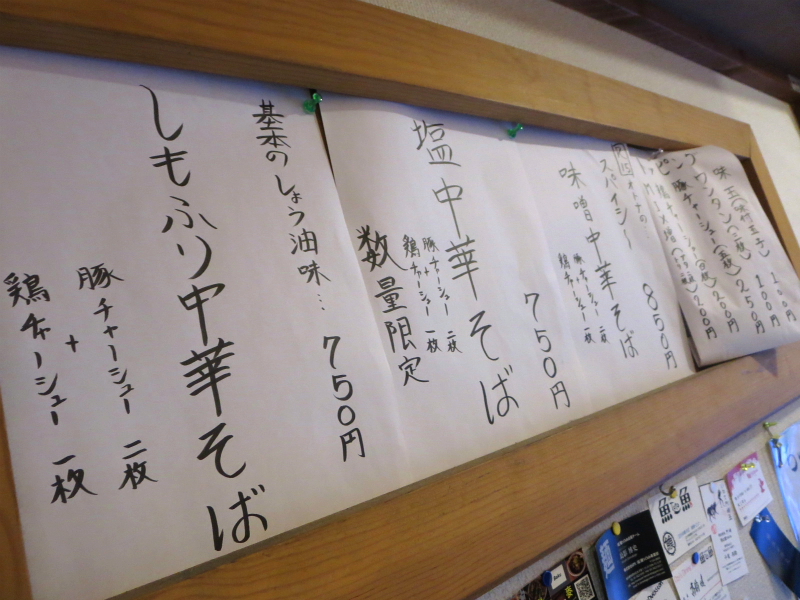 味玉(味付玉子) 100円
ワンタン(三枚) 100円
豚チャーシュー(五枚) 250円
200円
200円
スパイシー
味噌中華そば
豚チャーシュー 二枚
+
鶏チャーシュー 一枚
850円
塩中華そば
豚チャーシュー 二枚
+
鶏チャーシュー 一枚
数量限定
750円
基本のしょう油味…
750円
しもふり中華そば
豚チャーシュー 二枚
+
鶏チャーシュー 一枚